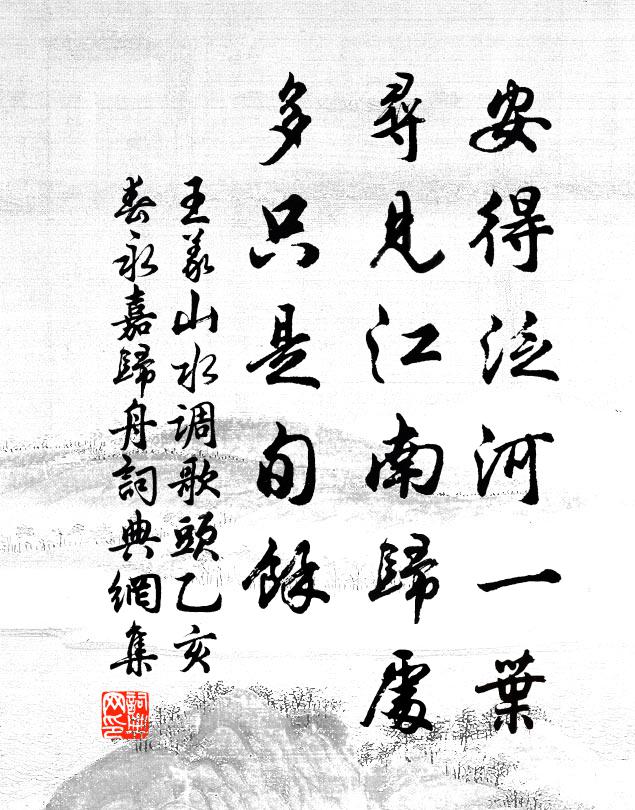 安得泛河一葉
尋見江南歸處
多只是旬餘
王義山水调歌頭乙亥
春永嘉歸舟詞典網集
詞典網印